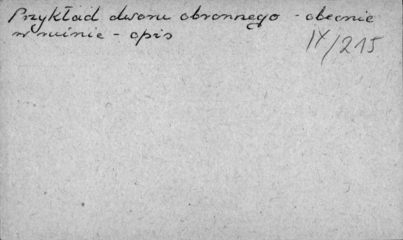 Przykład dworu obronnego - obecnie
w ruinie - opis
IX/215